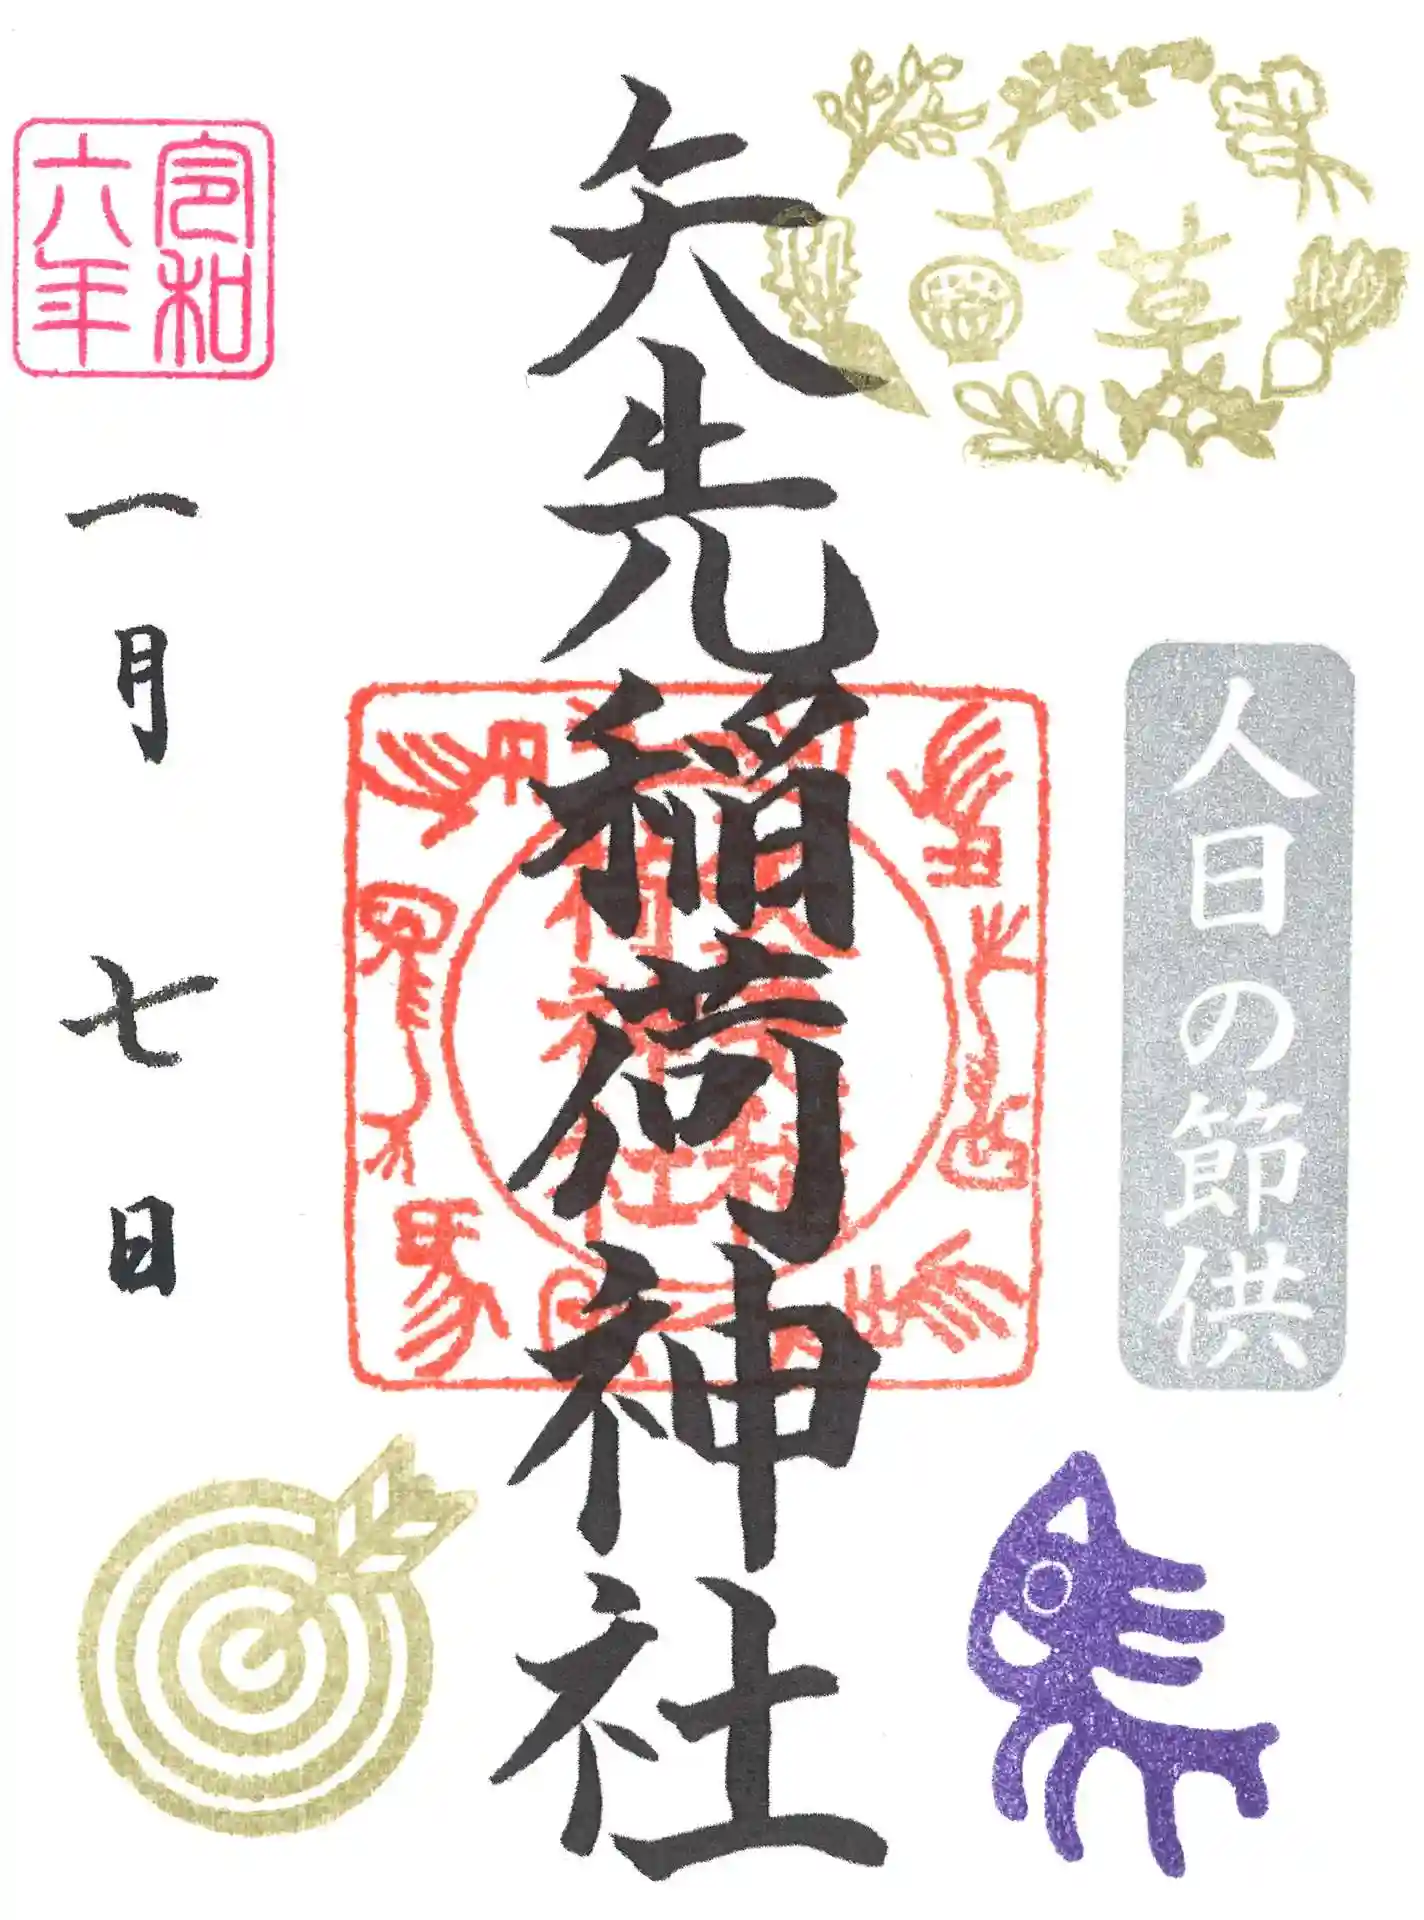 七草
人日の節供
矢先稲荷神社
令和
六年
一月七日